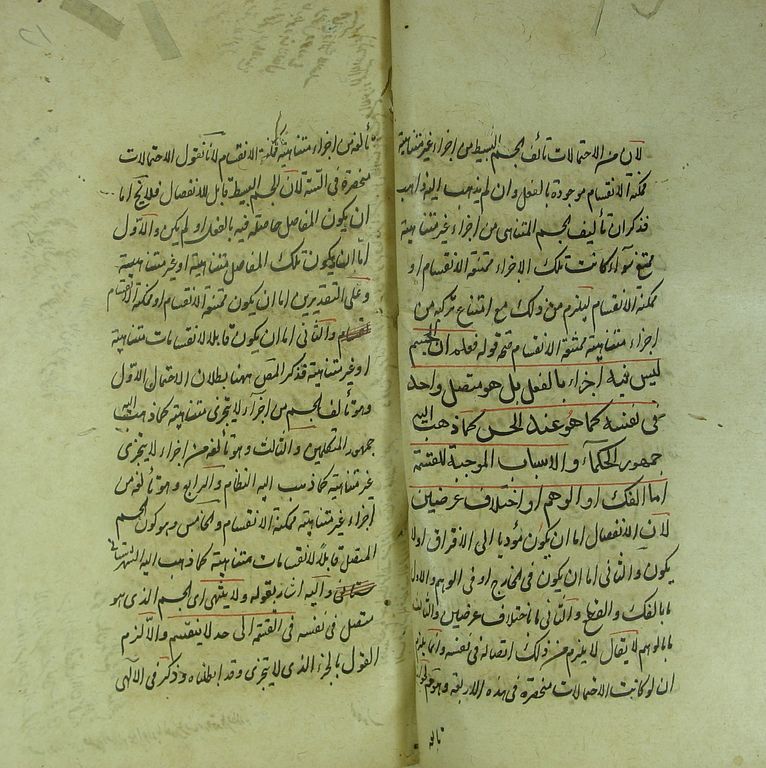 لان من الاحتمالات تألف الجسم البسيط من اجزاء غير متناهية
ممكنة الانقسام موجودة بالفعل وان لم يذهب اليه ذاهب
فذكر ان تأليف الجسم المتناهى من اجزاء غير متناهية
ممتنع سواء كانت تلك الاجزاء ممتنعة الانقسام او
ممكنة الانقسام ليلزم من ذلك مع امتناع تركبه من
اجزاء متناهية ممتنعة الانقسام قوله فعلم ان الجسم
ليس فيه اجزاء بالفعل بل هو متصل واحد
فى نفسه كما هو عند الحس كما ذهب اليه
جمهور الحكماء والاسباب الموجبة للقسمة
اما الفك او الوهم او اختلاف عرضين
لان الانفصال اما ان يكون مؤديا الى الافتراق او لا
يكون والثانى اما ان يكون فى الخارج او فى الوهم والاول
بالفك والقطع والثانى باختلاف عرضين والثالث
بالوهم لا يقال لا يلزم من ذلك اتصاله فى نفسه وانما يلزم
ان لو كانت الاحتمالات منحصرة فى هذه الاربعة وهو
تألفه من اجزاء متناهية ممكنة الانقسام لانا نقول الاحتمالات
منحصرة فى الستة لان الجسم البسيط قابل للانفصال فلا يخ اما
ان يكون المفاصل حاصلة فيه بالفعل او لم يكن والاول
اما ان يكون تلك المفاصل متناهية او غير متناهية
وعلى التقديرين اما ان يكون ممتنعة الانقسام او ممكنة الانقسام
والثانى اما ان يكون قابلا لانقسامات متناهية
او غير متناهية فذكر المص ههنا بطلان الاحتمال الاول
وهو تألف الجسم من اجزاء لا يتجزى متناهية كما ذهب اليه
جمهور المتكلمين والثالث وهو تألفه من اجزاء لا يتجزى
غير متناهية كما ذهب اليه النظام والرابع وهو تألفه من
اجزاء غير متناهية ممكنة الانقسام والخامس وهو كون الجسم
المتصل قابلا لانقسامات متناهية كما ذهب اليه الشهرستانى
واليه اشار بقوله ولا ينتهى اى الجسم الذى هو
متصل فى نفسه فى القسمة الى حد لا ينقسم والا لزم
القول بالجزء الذى لا يتجزى وقد ابطلناه وذكر فى الالهى